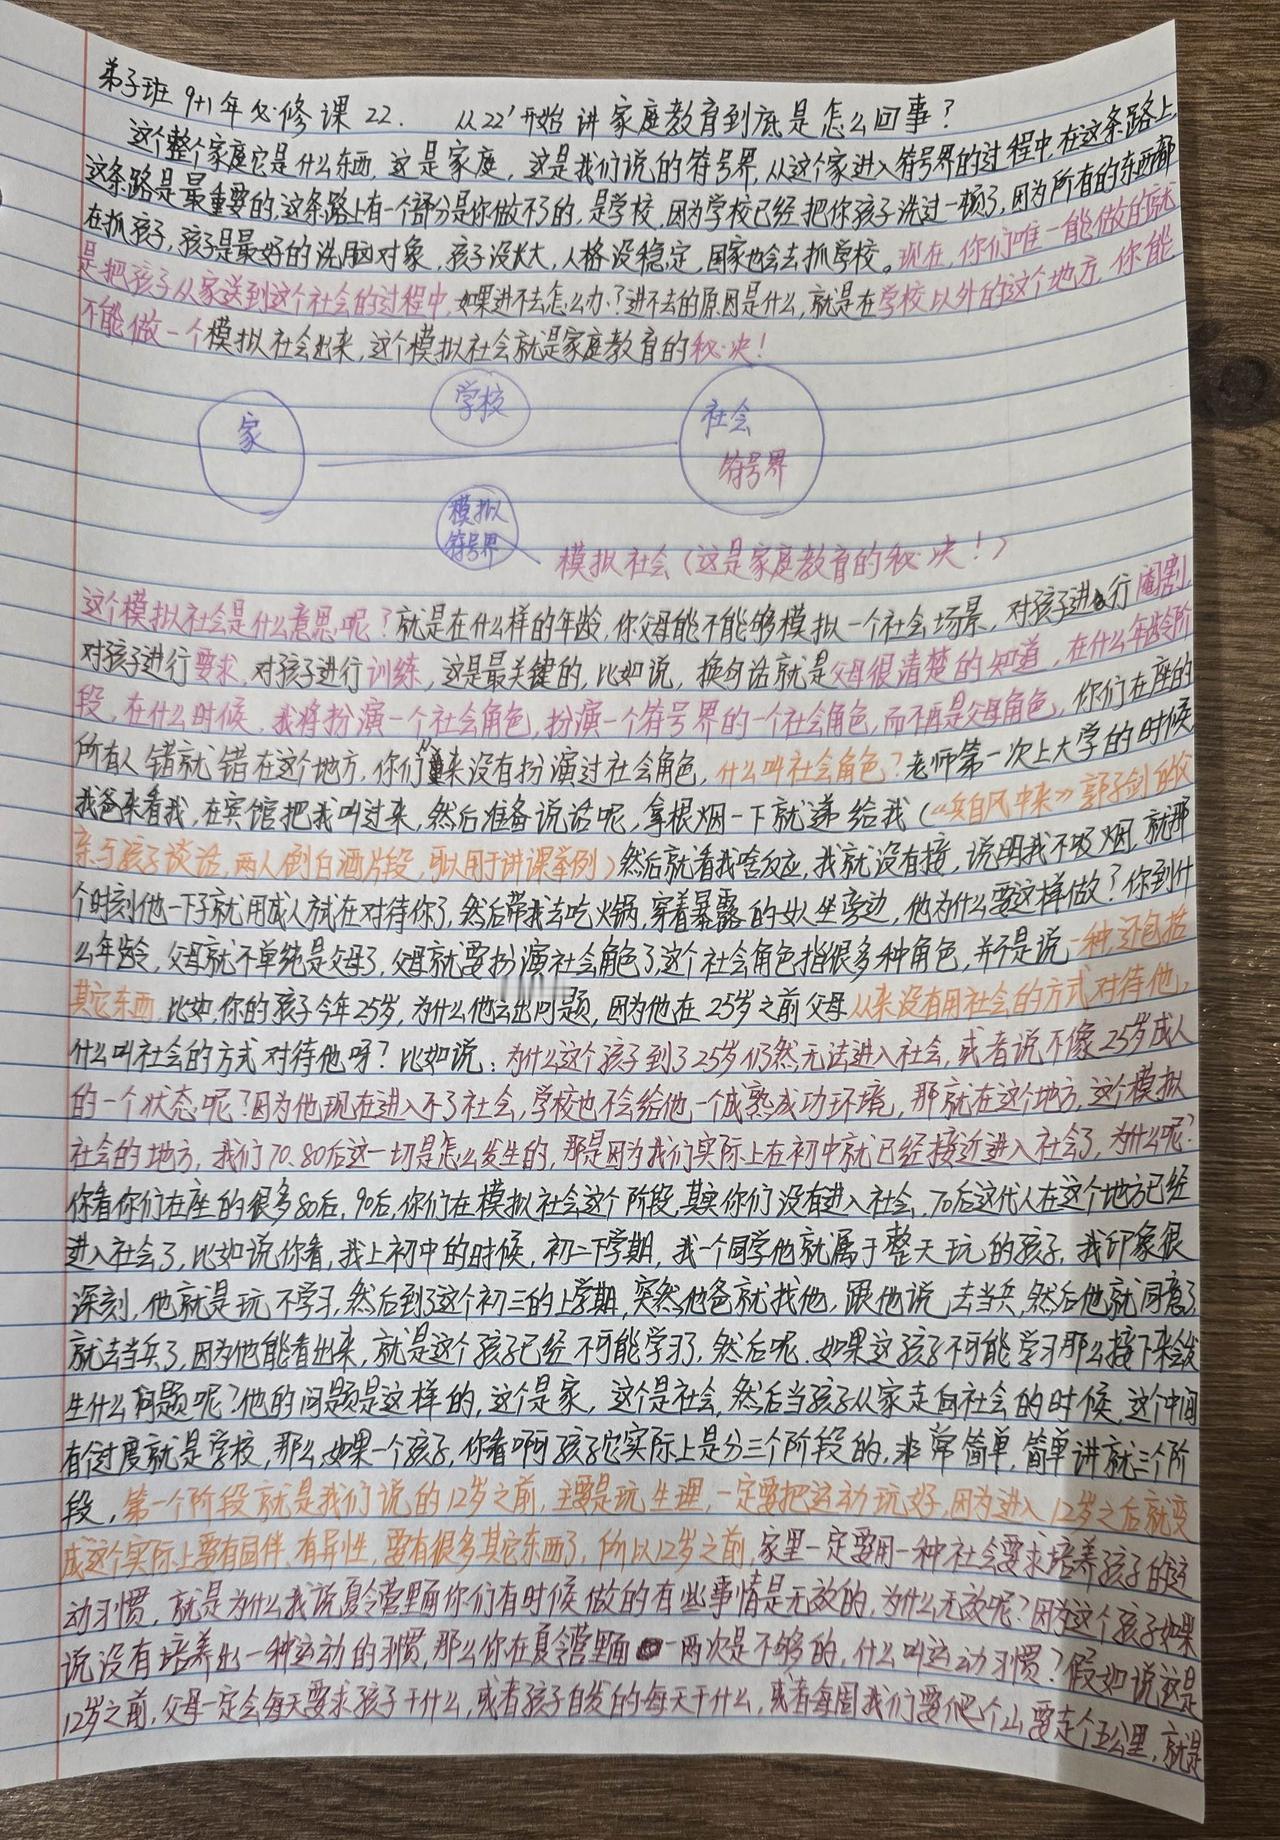 弟子班 9+1年必修课 22. 从22'开始讲家庭教育到底是怎么回事?
这个整个家庭它是什么东西,这是家庭,这是我们说的符号界,从这个家进入符号界的过程中,在这条路上,
这条路是最重要的,这条路上有一个部分是你做不了的,是学校,因为学校已经把你孩子洗过一顿了,因为所有的东西都
在抓孩子,孩子是最好的洗脑对象,孩子没长大,人格没稳定,国家也会去抓学校。现在,你们唯一能做的就
是把孩子从家送到这个社会的过程中,如果进不去怎么办?进不去的原因是什么,就是在学校以外的这个地方,你能
不能做一个模拟社会出来,这个模拟社会就是家庭教育的秘决!
家
学校
社会
符号界
模拟
符号界
模拟社会(这是家庭教育的秘决!)
这个模拟社会是什么意思呢?就是在什么样的年龄,你父母能不能够模拟一个社会场景,对孩子进行阉割,
对孩子进行要求,对孩子进行训练,这是最关键的,比如说,换句话就是父母很清楚的知道,在什么年龄阶
段,在什么时候,我将扮演一个社会角色,扮演一个符号界的一个社会角色,而不再是父母角色,你们在座的
所有人错就错在这个地方,你们从来没有扮演过社会角色,什么叫社会角色?老师第一次上大学的时候,
我爸来看我,在宾馆把我叫过来,然后准备说话呢,拿根烟一下就递给我(《兵自风中来》郭子剑的父
亲与孩子谈话,两人倒白酒片段,可以用于讲课举例)然后就看我啥反应,我就没有接,说明我不吸烟,就那
个时刻他一下子就用成人方式在对待你了,然后带我去吃火锅,穿着暴露的女人坐旁边,他为什么要这样做?你到什
么年龄,父母就不单纯是父母了,父母就要扮演社会角色了,这个社会角色指很多种角色,并不是说一种,还包括
其它东西,比如,你的孩子今年25岁,为什么他会出问题,因为他在25岁之前父母从来没有用社会的方式对待他,
什么叫社会的方式对待他呀?比如说:为什么这个孩子到了25岁仍然无法进入社会,或者说不像25岁成人
的一个状态呢?因为他现在进入不了社会,学校也不会给他一个成熟成功环境,那就在这个地方,这个模拟
社会的地方,我们70.80后这一切是怎么发生的,那是因为我们实际上在初中就已经接近进入社会了,为什么呢?
你看你们在座的很多80后,90后,你们在模拟社会这个阶段,其实你们没有进入社会,70后这代人在这个地方已经
进入社会了,比如说你看,我上初中的时候,初二下学期,我一个同学他就属于整天玩的孩子,我印象很
深刻,他就是玩,不学习,然后到了这个初三的上学期,突然他爸就找他,跟他说,去当兵,然后他就同意了,
就去当兵了,因为他能看出来,就是这个孩子已经不可能学习了,然后呢,如果这孩子不可能学习那么接下来会发
生什么问题呢?他的问题是这样的,这个是家,这个是社会,然后当孩子从家走向社会的时候,这个中间
有个过度就是学校,那么如果一个孩子,你看啊,孩子它实际上是分三个阶段的,非常简单,简单讲就三个阶
段,第一个阶段就是我们说的12岁之前,主要是玩生理,一定要把运动玩好,因为进入12岁之后就变
成这个实际上要有同伴,有异性,要有很多其它东西了,所以12岁之前,家里一定要用一种社会要求培养孩子的运
动习惯,就是为什么我说夏令营里面你们有时候做的有些事情是无效的,为什么无效呢?因为这个孩子如果
说没有培养出一种运动的习惯,那么你在夏令营里面一两次是不够的,什么叫运动习惯?假如说这是
12岁之前,父母一定会每天要求孩子干什么,或者孩子自发的每天干什么,或者每周我们要爬个山要走个五公里,就是